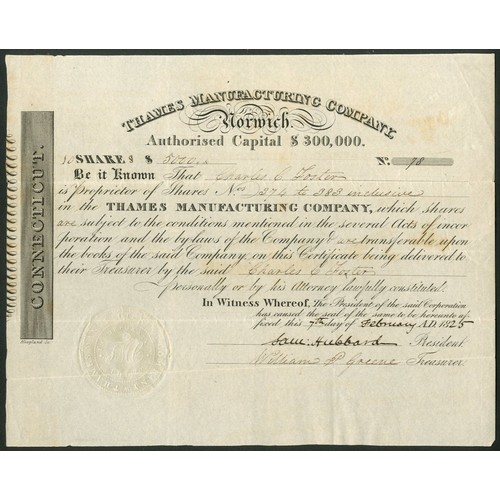 THAMES MANUFACTURING COMPANY,
Norwich.
Authorised Capital $ 300,000.
10 SHARES $ 5000..
No. 78
Be it Known That Charles C Foster
is proprietor of Shares Nos 374 to 383 inclusive
in the THAMES MANUFACTURING COMPANY, which shares
are subject to the conditions mentioned in the several Acts of incor
poration and the by-laws of the Company & are transferable upon
the books of the said Company, on this Certificate being delivered to
their Treasurer by the said Charles C Foster
personally or by his Attorney lawfully constituted.
In Witness Whereof, The President of the said Corporation
has caused the seal of the same to be hereunto af
fixed this 7th day of February A.D. 1825
Saml. Hubbard President
William P. Greene Treasurer
CONNECTICUT.